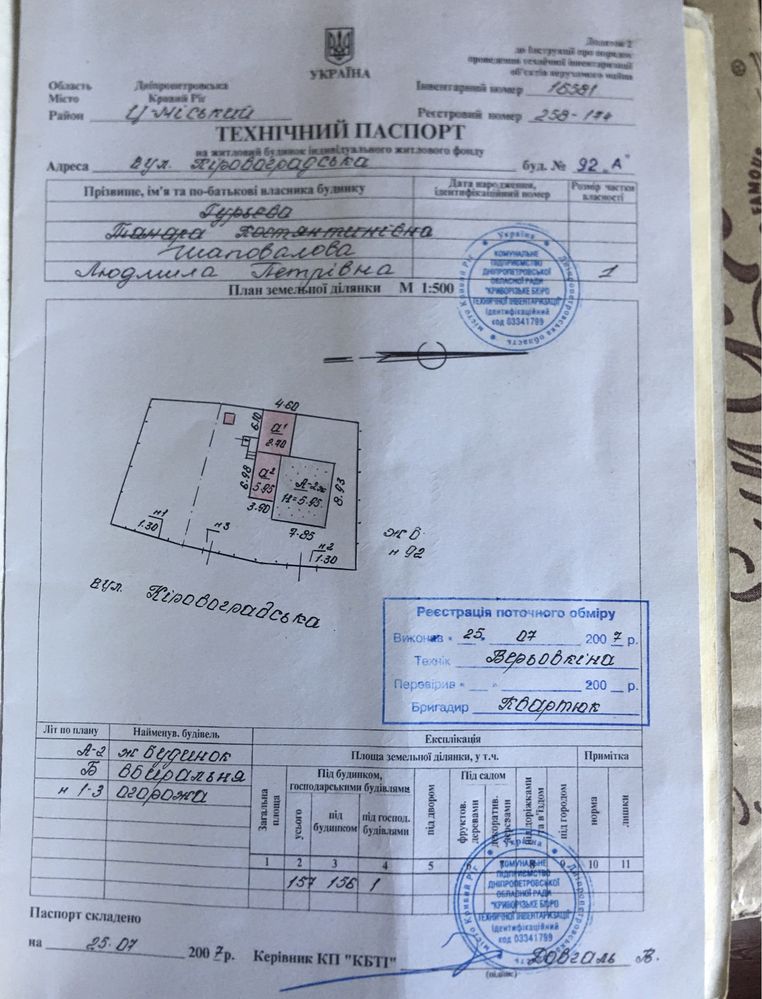 Додаток 2
до Інструкції про порядок
проведення технічної інвентаризації
об'єктів нерухомого майна
УКРАЇНА
Область Дніпропетровська
Місто Кривий Ріг
Район Ц-Міський
Інвентарний номер 16581
Реєстровий номер 258-174
ТЕХНІЧНИЙ ПАСПОРТ
на житловий будинок індивідуального житлового фонду
Адреса вул. Кіровоградська буд. № 92 "А"
Прізвище, ім'я та по-батькові власника будинку
Дата народження, ідентифікаційний номер
Розмір частки власності
Гурьева
Тамара Костянтинівна
Шаповалова
Людмила Петрівна 1
План земельної ділянки М 1:500
Україна
Дніпропетровська область
місто Кривий Ріг
КОМУНАЛЬНЕ
ПІДПРИЄМСТВО
ДНІПРОПЕТРОВСЬКОЇ
ОБЛАСНОЇ РАДИ
"КРИВОРІЗЬКЕ БЮРО
ТЕХНІЧНОЇ ІНВЕНТАРИЗАЦІЇ"
Ідентифікаційний
код 03341799
4.60
6.10
а¹
2.70
6.98
а²
5.95
3.90
А-2ж
H=5.95
8.93
7.85
н1
1.30
н3
н2
1.30
ж б
н 92
вул. Кіровоградська
Реєстрація поточного обміру
Виконав "25" 07 2007 р.
Технік Верьовкіна
Перевірив " " 200 р.
Бригадир Квартюк
Літ по плану
Наймену­в. будівель
Експлікація
А-2 ж будинок
Б вбиральня
н 1-3 огорожа
Площа земельної ділянки, у т.ч.
Примітка
Загальна площа
Під будинком, господарськими будівлями
усього
під будинком
під господ. будівлями
під двором
Під садом
фруктов. деревами
декоратив. деревами
під доріжками та в'їздом
під городом
норма
лишки
1 2 3 4 5 6 7 8 9 10 11
157 156 1
Україна
Дніпропетровська область
місто Кривий Ріг
КОМУНАЛЬНЕ
ПІДПРИЄМСТВО
ДНІПРОПЕТРОВСЬКОЇ
ОБЛАСНОЇ РАДИ
"КРИВОРІЗЬКЕ БЮРО
ТЕХНІЧНОЇ ІНВЕНТАРИЗАЦІЇ"
Ідентифікаційний
код 03341799
Паспорт складено
на 25.07 2007 р. Керівник КП "КБТІ" Довгаль В.
(підпис)
FAMOUS